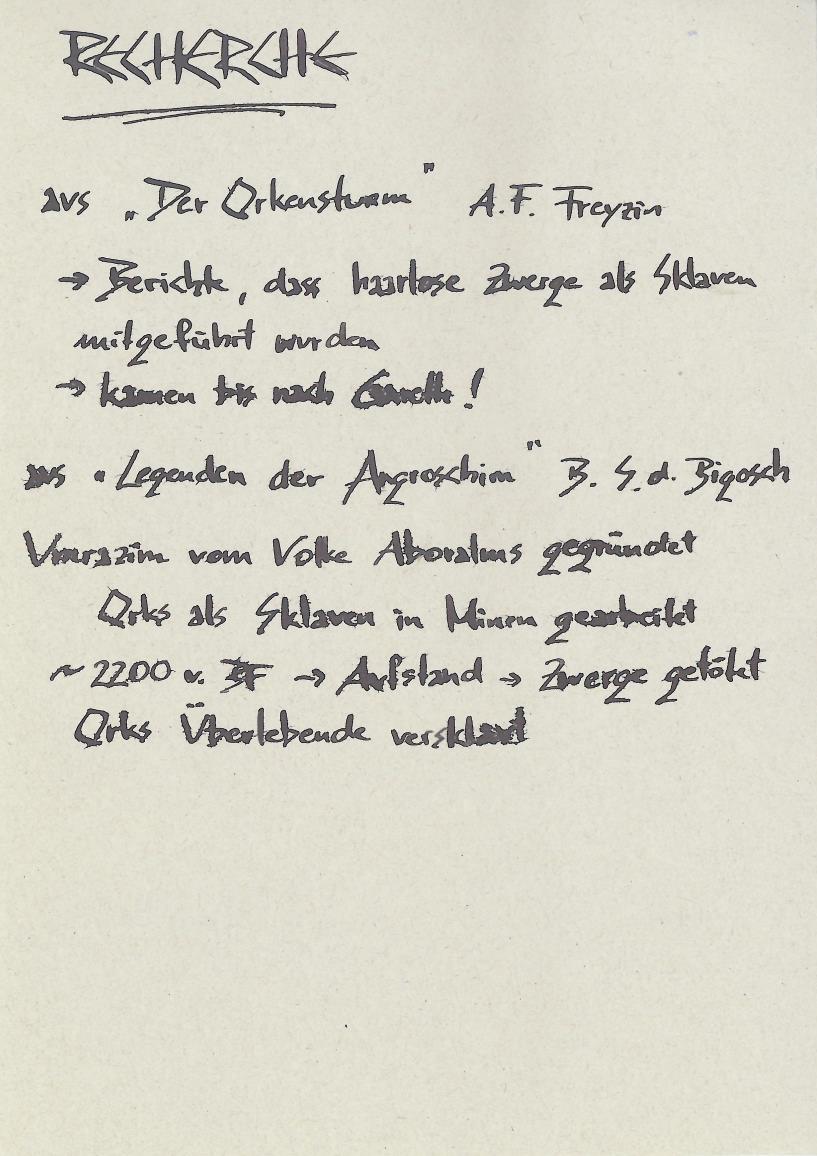 RECHERCHE
aus „Der Orkensturm" A.F. Freyzin
→ Berichte, dass haarlose Zwerge als Sklaven
mitgeführt wurden
→ kamen bis nach Gareth!
aus "Legenden der Angroschim" B. S. d. Bigosch
Umrazim vom Volke Aboralms gegründet
Orks als Sklaven in Minen gearbeitet
~ 2200 v. BF → Aufstand → Zwerge getötet
Orks Überlebende versklavt